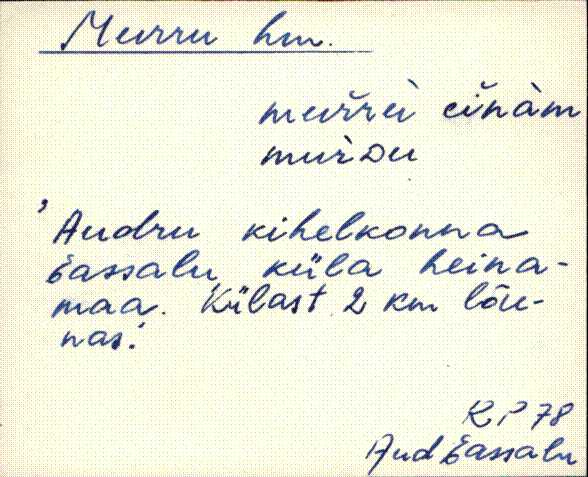 Murru hm.
murru
murDu
'Audru kihelkonna
Eassalu küla heina-
maa. Külast 2 km lõu-
nas.'
KP 78
Aud Eassalu